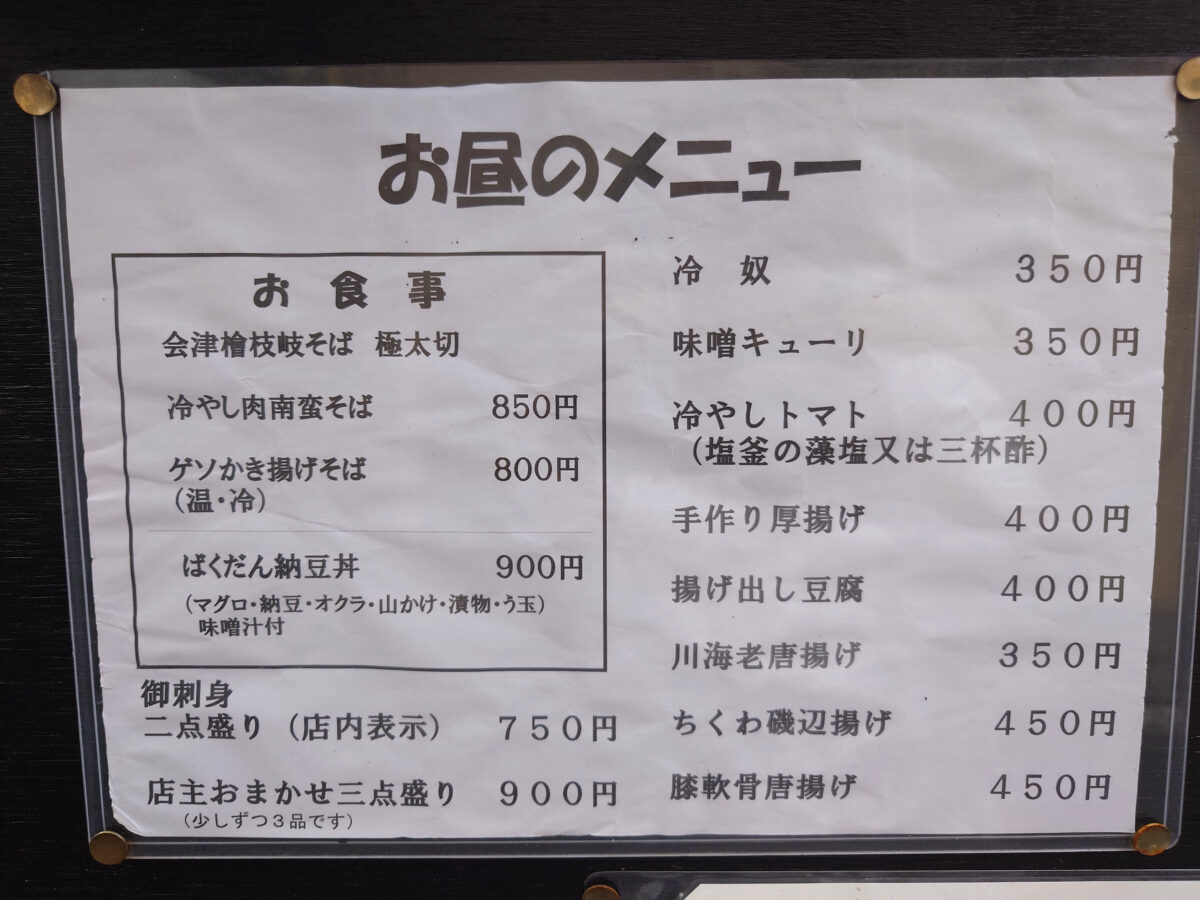 お昼のメニュー
お食事
会津檜枝岐そば 極太切
冷やし肉南蛮そば 850円
ゲソかき揚げそば 800円
(温・冷)
ばくだん納豆丼 900円
(マグロ・納豆・オクラ・山かけ・漬物・う玉)
味噌汁付
御刺身
二点盛り (店内表示) 750円
店主おまかせ三点盛り 900円
(少しずつ3品です)
冷 奴 350円
味噌キューリ 350円
冷やしトマト 400円
(塩釜の藻塩又は三杯酢)
手作り厚揚げ 400円
揚げ出し豆腐 400円
川海老唐揚げ 350円
ちくわ磯辺揚げ 450円
膝軟骨唐揚げ 450円